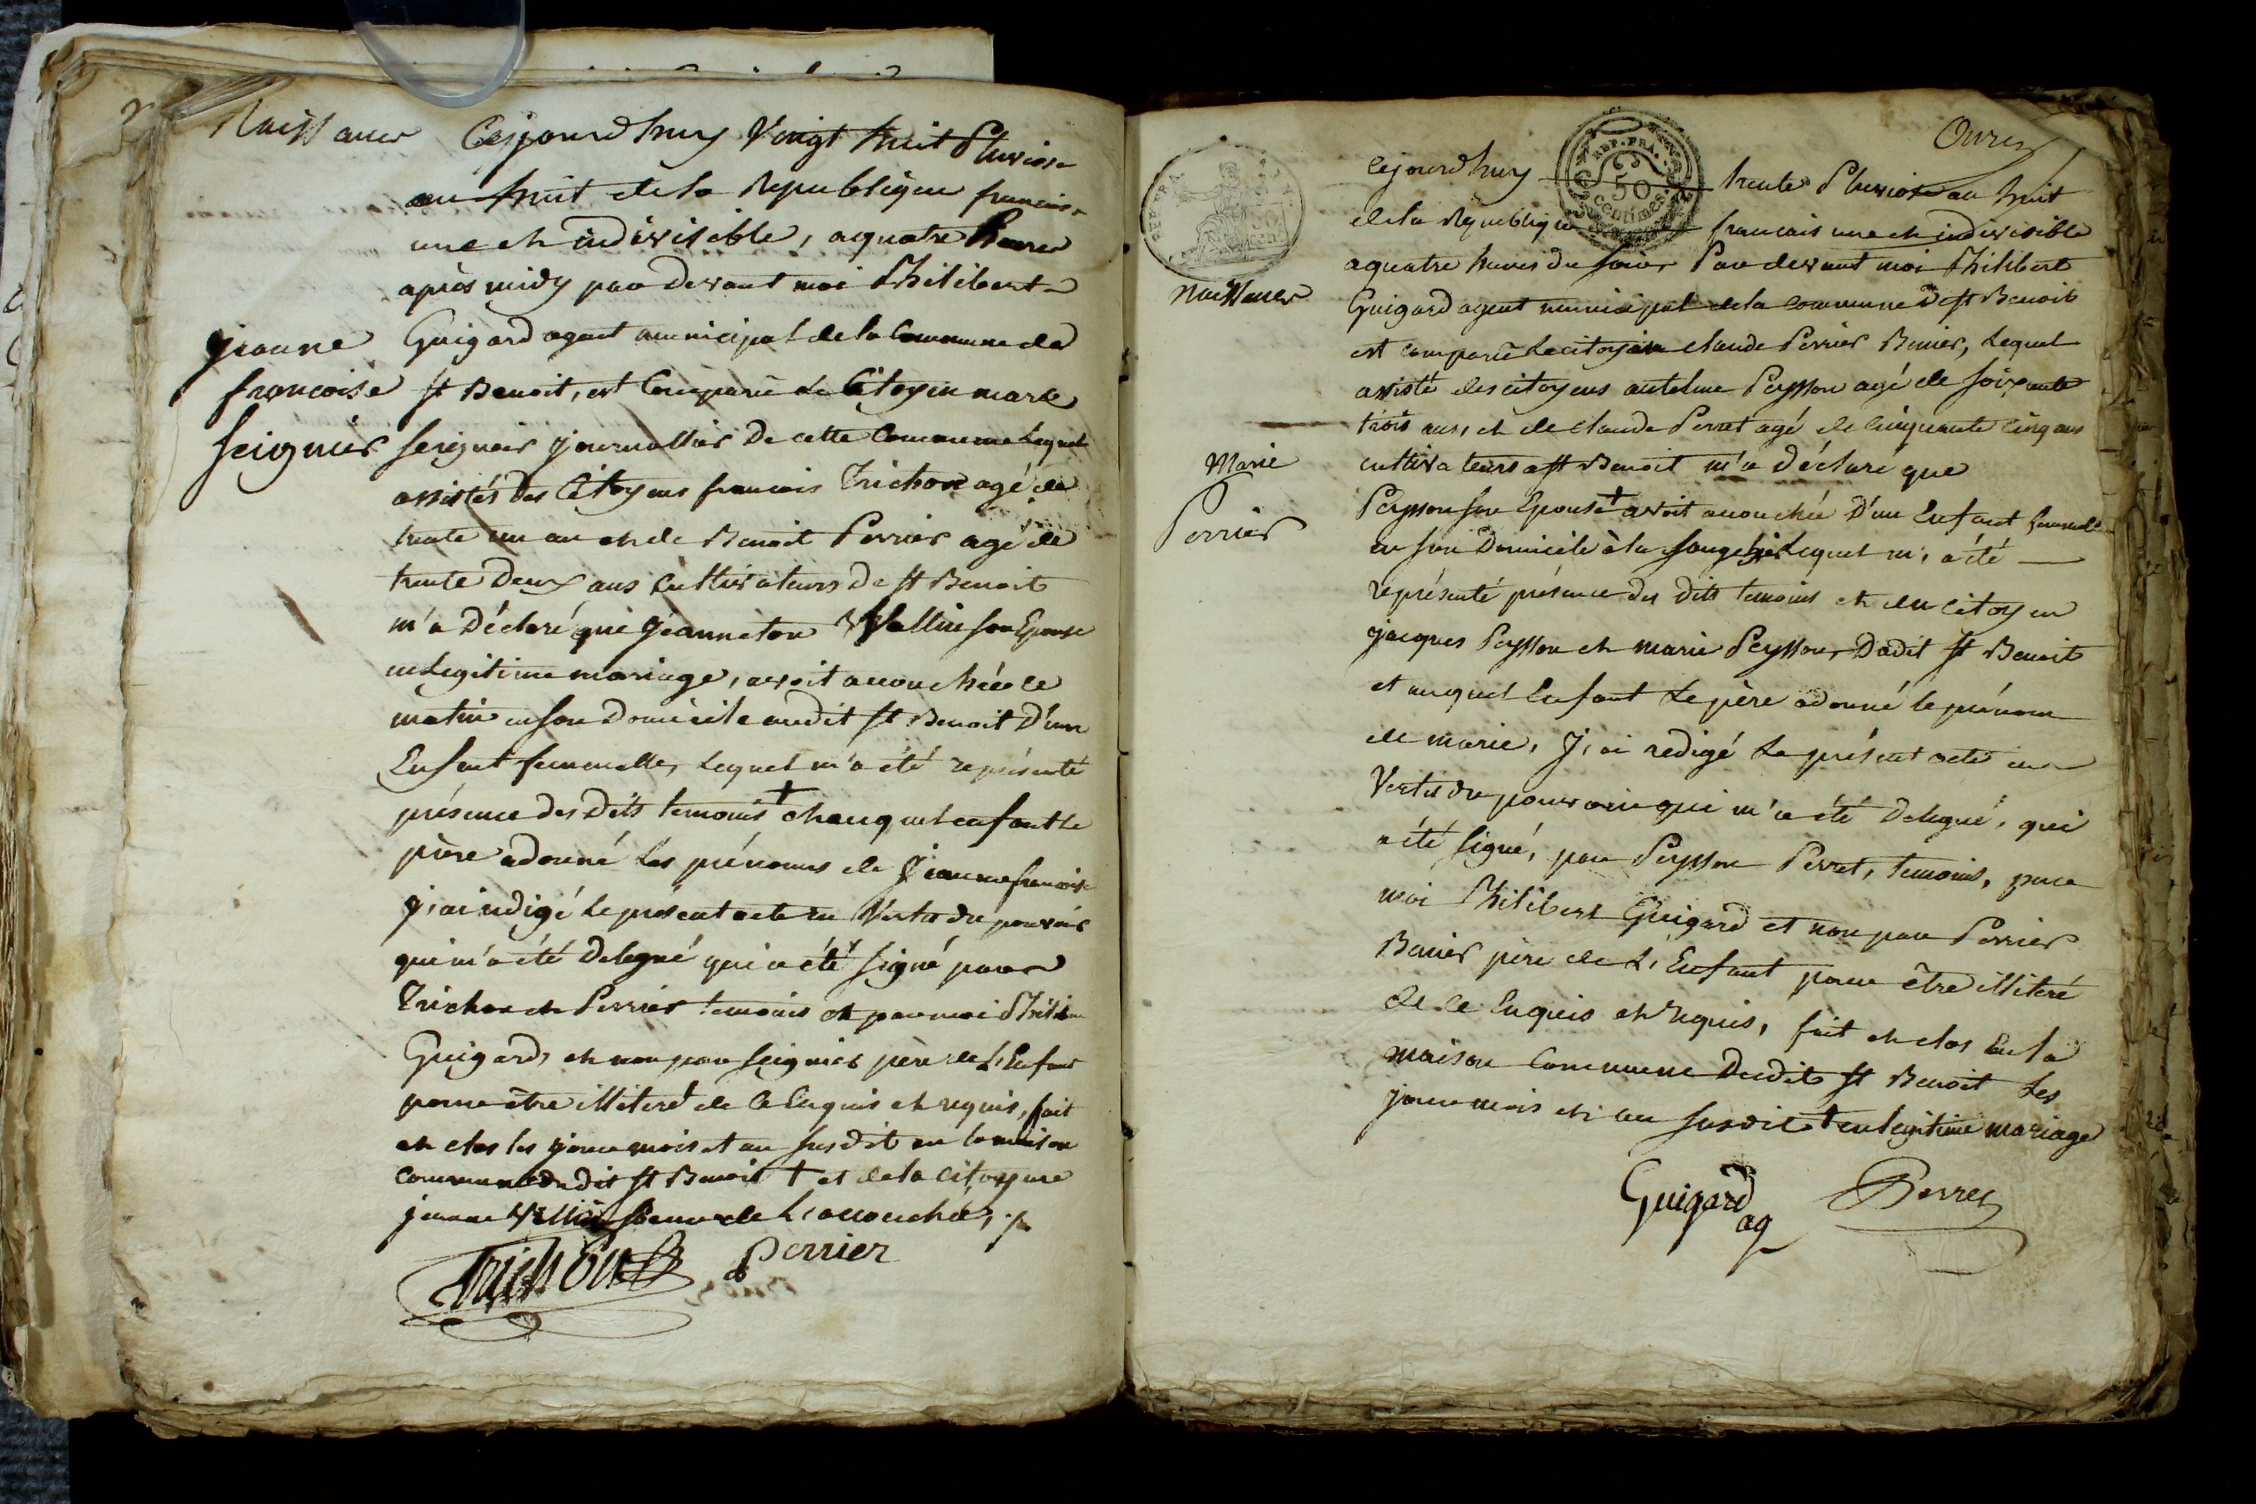 Naissance
Cejourdhuy Vingt huit Pluviose
an huit de la Republique francais.
une et indivisible, a quatre heures
après midy par devant moi Philibert
Guigard agent municipal de la Commune de
St Benoit, est Comparu Le Citoyen marc
Seignier journallier De cette Commune Lequel
assistés Des Citoyens francois Trichon agé de
trente un an et de Benoit Perrier agé de
trente Deux ans Cultivateurs De St Benoit
m'a Déclaré que Jeanneton Vallin son Epouse
en Legitime mariage, avoit accouchée ce
matin en son Domicile audit St Benoit D'un
Enfant femmelle, Lequel m'a été représenté
présence des Dits temoins + et auquel enfant le
père a donné Les prénoms de Jeanne francoise
j'ai redigé Le present acte en Vertu du pouvoir
qui m'a été Delegué qui a été signé par
Trichon et Perrier temoins et par moi Philibert
Guigard, et non par Seignier père de L'Enfant
pour être illiteré de Ce Enquis et requis, fait
et clos les jour mois et an susdit en la maison
commune dudit St Benoit + et de la citoyenne
jeanne Vallin soeur de L'accouchée,
Trichon Perrier
Jeanne
francoise
Seignier
REP. FRA.
50
centimes
Naissance
Marie
Perrier
Cejourdhuy trente Pluviose an huit
de la Republique francais une et indivisible
a quatre heures du soir, Par devant moi Philibert
Guigard agent municipal de la commune De St Benoit
est comparu Le citoyen Claude Perrier Bunier, Lequel
assisté des citoyens antelme Peysson agé de soixante
trois ans, et de Claude Perret agé de Cinquante Cinq ans
cultivateurs a St Benoit m'a Déclaré que
Peysson son Epouse + avoit accouchée D'un Enfant femmelle
en son Domicile à la Lequel m'a été
représenté présence des dits temoins et du citoyen
jacques Peysson et marie Peysson, Dudit St Benoit
et auquel Enfant Le père a donné le prénom
de marie, J'ai redigé Le présent acte en
Vertu du pouvoir qui m'a été Delegué, qui
a été signé, par Peysson Perret, temoins, par
moi Philibert Guigard et non par Perrier
Bunier père de L'Enfant pour être illiteré
de Ce Enquis et requis, fait et clos En la
maison Commune Dudit St Benoit Les
jour mois et an susdit + en legitime mariage
Guigard
ag
Perret